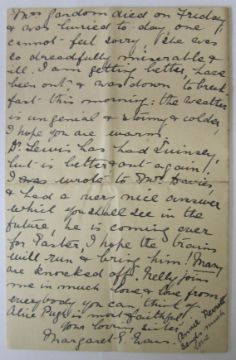 Mrs Jardom died on Friday
& was buried to day, one
cannot feel sorry! She was
so dreadfully miserable &
ill. I am getting better, have
been out, & was down to break
fast this morning: the weather
is ungenial & stormy & colder,
I hope you are warm.
St Lewis has had Quinsey,
but is better & out again!
I wrote to Mrs Davies,
& had a very nice answer
which you shall see in the
future, he is coming over
for Easter, I hope the trains
will run & bring him! Many
are knocked off. Nelly joins
me in much love & love from
everybody you can think
Alice Pugh is most faithful
Your loving sister
Margaret E. Evans.
sends much
love